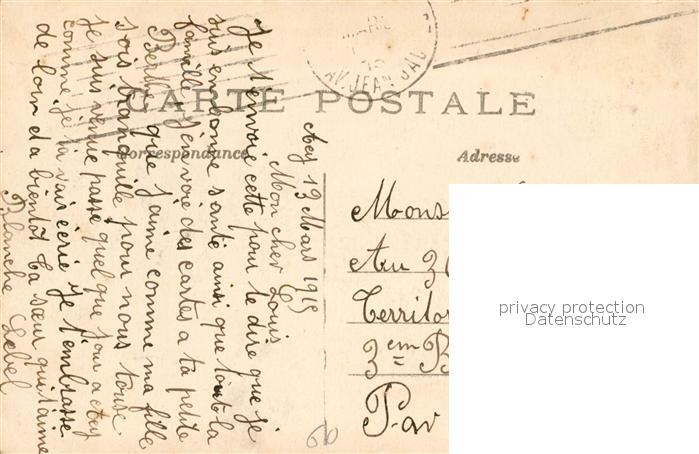 CARTE POSTALE
Correspondance
Adresse
AV. JEAN JAU
Acy 13 Mars 1915
Mon cher Louis
Je t'envoie cette pour te dire que je
suis en bonne santé ainsi que toute la
famille j'envoie des cartes a ta petite
Berthe que j'aime comme ma fille
sois tranquille pour nous tous
Je suis venue passe quelque jour a Acy
comme je tu vais ecrie je t'embrasse
de loin da bientot ta sœur qui t'aime
Blanche Lebel
Mons
Au
Territo
3em B
Par
privacy protection
Datenschutz